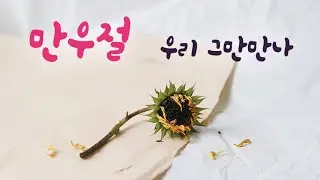 만우절 우리 그만만나